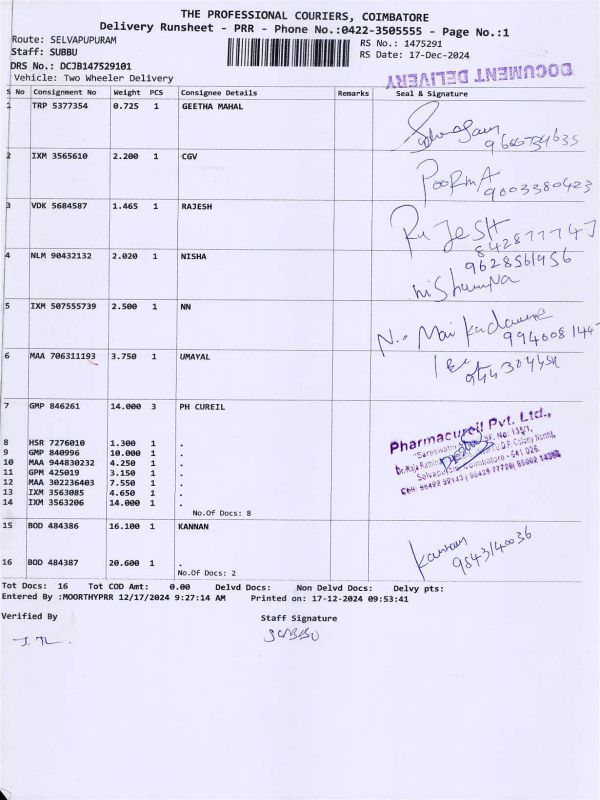 THE PROFESSIONAL COURIERS, COIMBATORE
Delivery Runsheet - PRR - Phone No.:0422-3505555 - Page No.:1
Route: SELVAPUPURAM
RS No.: 1475291
Staff: SUBBU
RS Date: 17-Dec-2024
DRS No.: DCJB147529101
DOCUMENT DELIVERY
Vehicle: Two Wheeler Delivery
S No Consignment No Weight PCS Consignee Details Remarks Seal & Signature
1 TRP 5377354 0.725 1 GEETHA MAHAL
9600734635
2 IXM 3565610 2.200 1 CGV
PooRmA
9003380423
3 VDK 5684587 1.465 1 RAJESH
RaJESH
8428777747
4 NLM 90432132 2.020 1 NISHA
9628561956
5 IXM 507555739 2.500 1 NN
6 MAA 706311193 3.750 1 UMAYAL
7 GMP 846261 14.000 3 PH CUREIL
Pharmacureil Pvt. Ltd.,
8 HSR 7276010 1.300 1 .
9 GMP 840996 10.000 1 .
10 MAA 944830232 4.250 1 .
11 GPM 425019 3.150 1 .
12 MAA 302236403 7.550 1 .
13 IXM 3563085 4.650 1 .
14 IXM 3563206 14.000 1 .
No.Of Docs: 8
15 BOD 484386 16.100 1 KANNAN
Kannan
9843140036
16 BOD 484387 20.600 1 .
No.Of Docs: 2
Tot Docs: 16 Tot COD Amt: 0.00 Delvd Docs: Non Delvd Docs: Delvy pts:
Entered By :MOORTHYPRR 12/17/2024 9:27:14 AM Printed on: 17-12-2024 09:53:41
Verified By Staff Signature
SUBBU